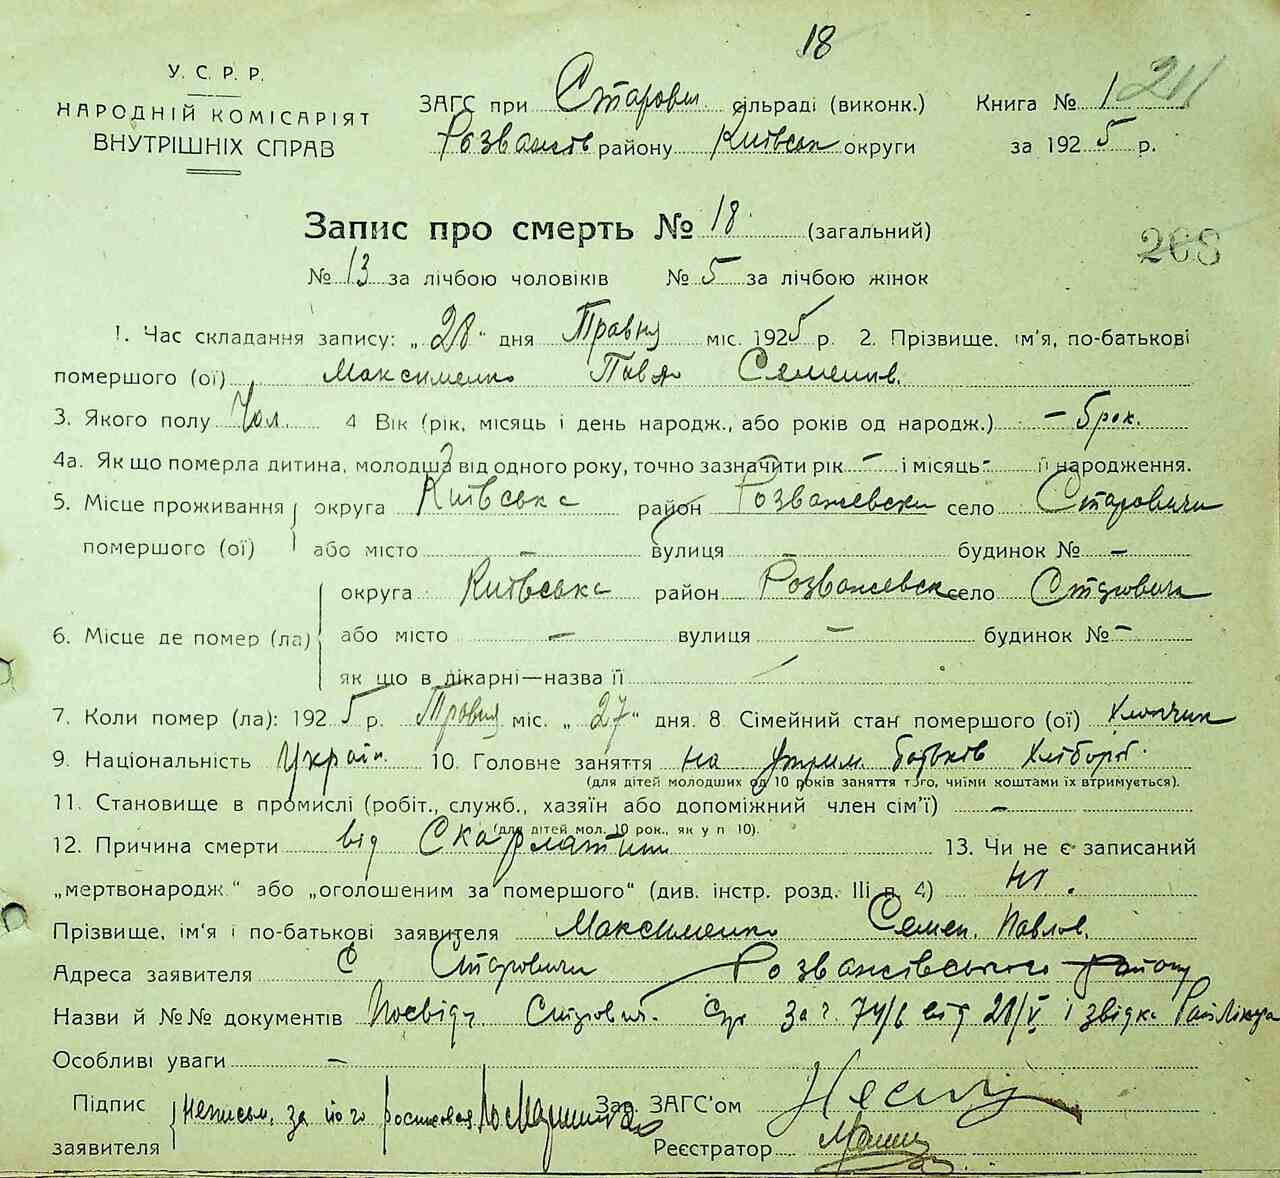 18
У. С. Р. Р.
НАРОДНІЙ КОМІСАРІЯТ
ВНУТРІШНІХ СПРАВ
ЗАГС при Старови сільраді (виконк.) Книга № 1 211
Розважів району Київськ округи за 1925 р.
Запис про смерть № 18. (загальний)
268
№ 13 за лічбою чоловіків № 5 за лічбою жінок
1. Час складання запису: „28“ дня Травня міс. 1925 р. 2. Прізвище, ім'я, по-батькові
помершого (ої) Максименко Павло Семенів.
3. Якого полу Чол. 4 Вік (рік, місяць і день народж., або років од народж.) – 5 рок.
4а. Як що померла дитина, молодша від одного року, точно зазначити рік – і місяць - її народження.
5. Місце проживання округа Київська район Розважевськ село Старовичи
помершого (ої) або місто – вулиця – будинок № –
округа Київська район Розважевськ село Старовичи
6. Місце де помер (ла) або місто – вулиця – будинок № –
як що в лікарні—назва її
7. Коли помер (ла): 1925 р. Травня міс. „27“ дня. 8. Сімейний стан помершого (ої) Хлопчик
9. Національність Україн. 10. Головне заняття на утрим. батьків Хлібороб
(для дітей молодших од 10 років заняття того, чиїми коштами їх втримується).
11. Становище в промислі (робіт., служб., хазяїн або допоміжний член сім'ї) –
(для дітей мол. 10 рок., як у п 10).
12. Причина смерти від Скарлатини 13. Чи не є записаний
„мертвонародж“ або „оголошеним за помершого“ (див. інстр. розд. III п 4) ні.
Прізвище, ім'я і по-батькові заявителя Максименко Семен. Павлов.
Адреса заявителя С Старовичи Розважівського району
Назви й №№ документів Посвідч. за ч. 74/6 від 28/V і
Особливі уваги –
Підпис заявителя неписьм. за його Зав. ЗАГС'ом
Реєстратор